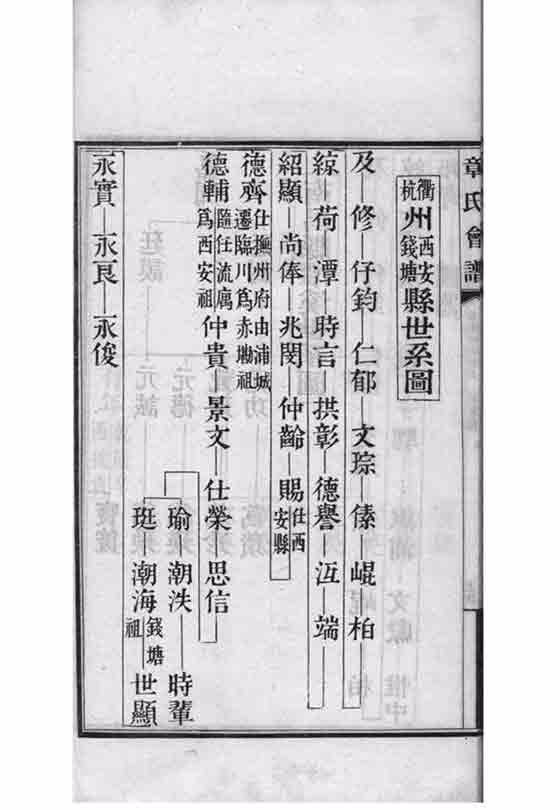 章氏會譜
衢杭州西安錢塘縣世系圖
及—修—仔鈞—仁郁—文琮—傃—崐—柏
綜—荷—潭—時言—拱彰—德譽—沍—端
紹顯—尚俸—兆閔—仲齡—賜仕西安縣
德齊仕撫州府由浦城遷臨川爲赤坳祖
德輔隨任流厲爲西安祖—仲貴—景文—仕榮—思信
瑜—潮泆—時輩
珽—潮海錢塘祖—世顯
永實—永良—永俊